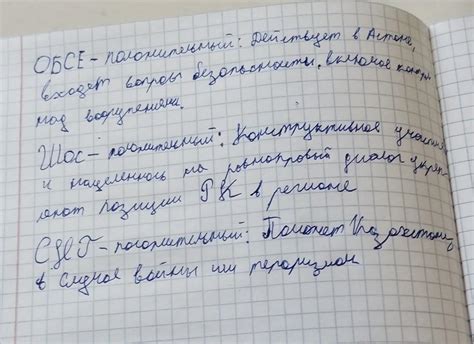 ОБСЕ - положительный: Действует в Астане,
входят вопросы безопасности, включая контр
над вооружением.
Шос - положительный: Конструктивное участие
и нацеленность на равноправый диалог укреп
ляют позиции РК в регионе
СНГ - положительный: Поможет Казахстану
в случае войны или терроризма